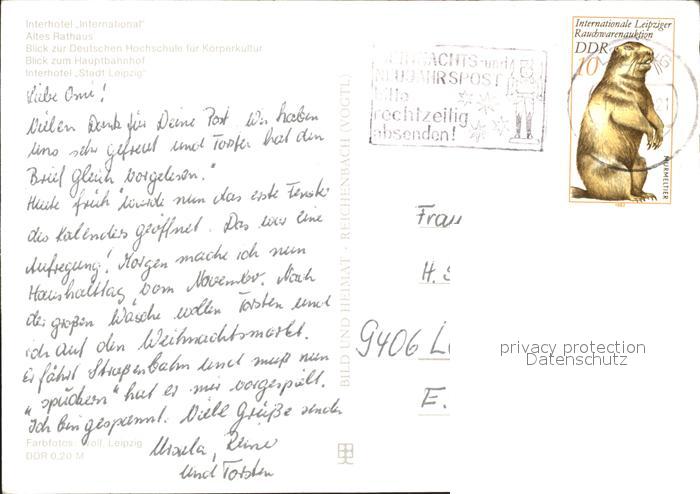 Interhotel „International"
Altes Rathaus
Blick zur Deutschen Hochschule für Körperkultur
Blick zum Hauptbahnhof
Interhotel „Stadt Leipzig"
Liebe Omi!
Vielen Dank für Deine Post. Wir haben
uns sehr gefreut und Torsten hat den
Brief gleich vorgelesen."
Heute früh wurde nun das erste Fenster
des Kalenders geöffnet. Das war eine
Aufregung! Morgen mache ich nun
Haushalttag vom November. Nach
der großen Wäsche wollen Torsten und
ich auf den Weihnachtsmarkt.
Er fährt Straßenbahn und muß nun
" hat er mir vorgespielt.
Ich bin gespannt. Viele Grüße senden
Ursula, Reiner
und Torsten
Farbfotos: Leipzig
DDR 0,20 M
BILD UND HEIMAT · REICHENBACH (VOGTL)
WEIHNACHTS- und
NEUJAHRSPOST
bitte
rechtzeitig
absenden!
Internationale Leipziger
Rauchwarenauktion
DDR
10
MURMELTIER
1982
21
Frau
H.
9406
E.
privacy protection
Datenschutz